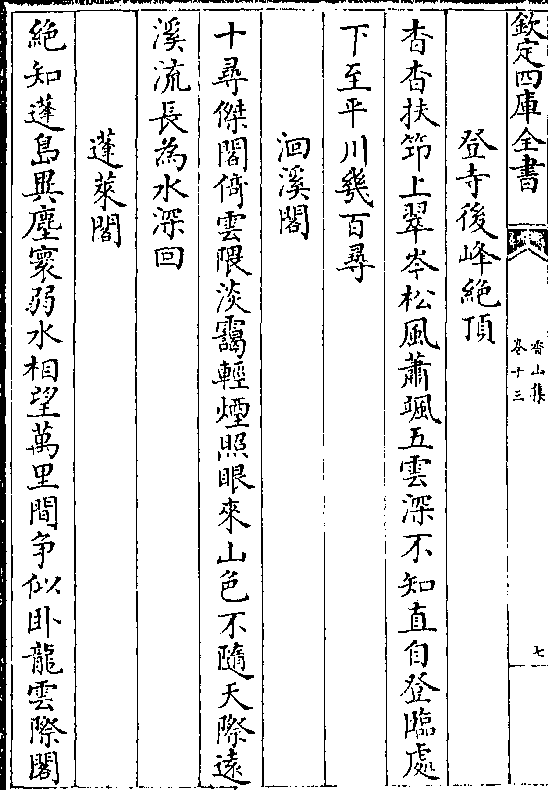 欽定四庫全書
香山集
卷十三
七
登寺後峰絶頂
杳杳扶笻上翠岑松風蕭颯五雲深不知直自登臨處
下至平川幾百尋
洄溪閣
十尋傑閣倚雲隈淡靄輕煙照眼來山色不隨天際遠
溪流長為水深回
蓬萊閣
絶知蓬島異塵寰弱水相望萬里間争似卧龍雲際閣